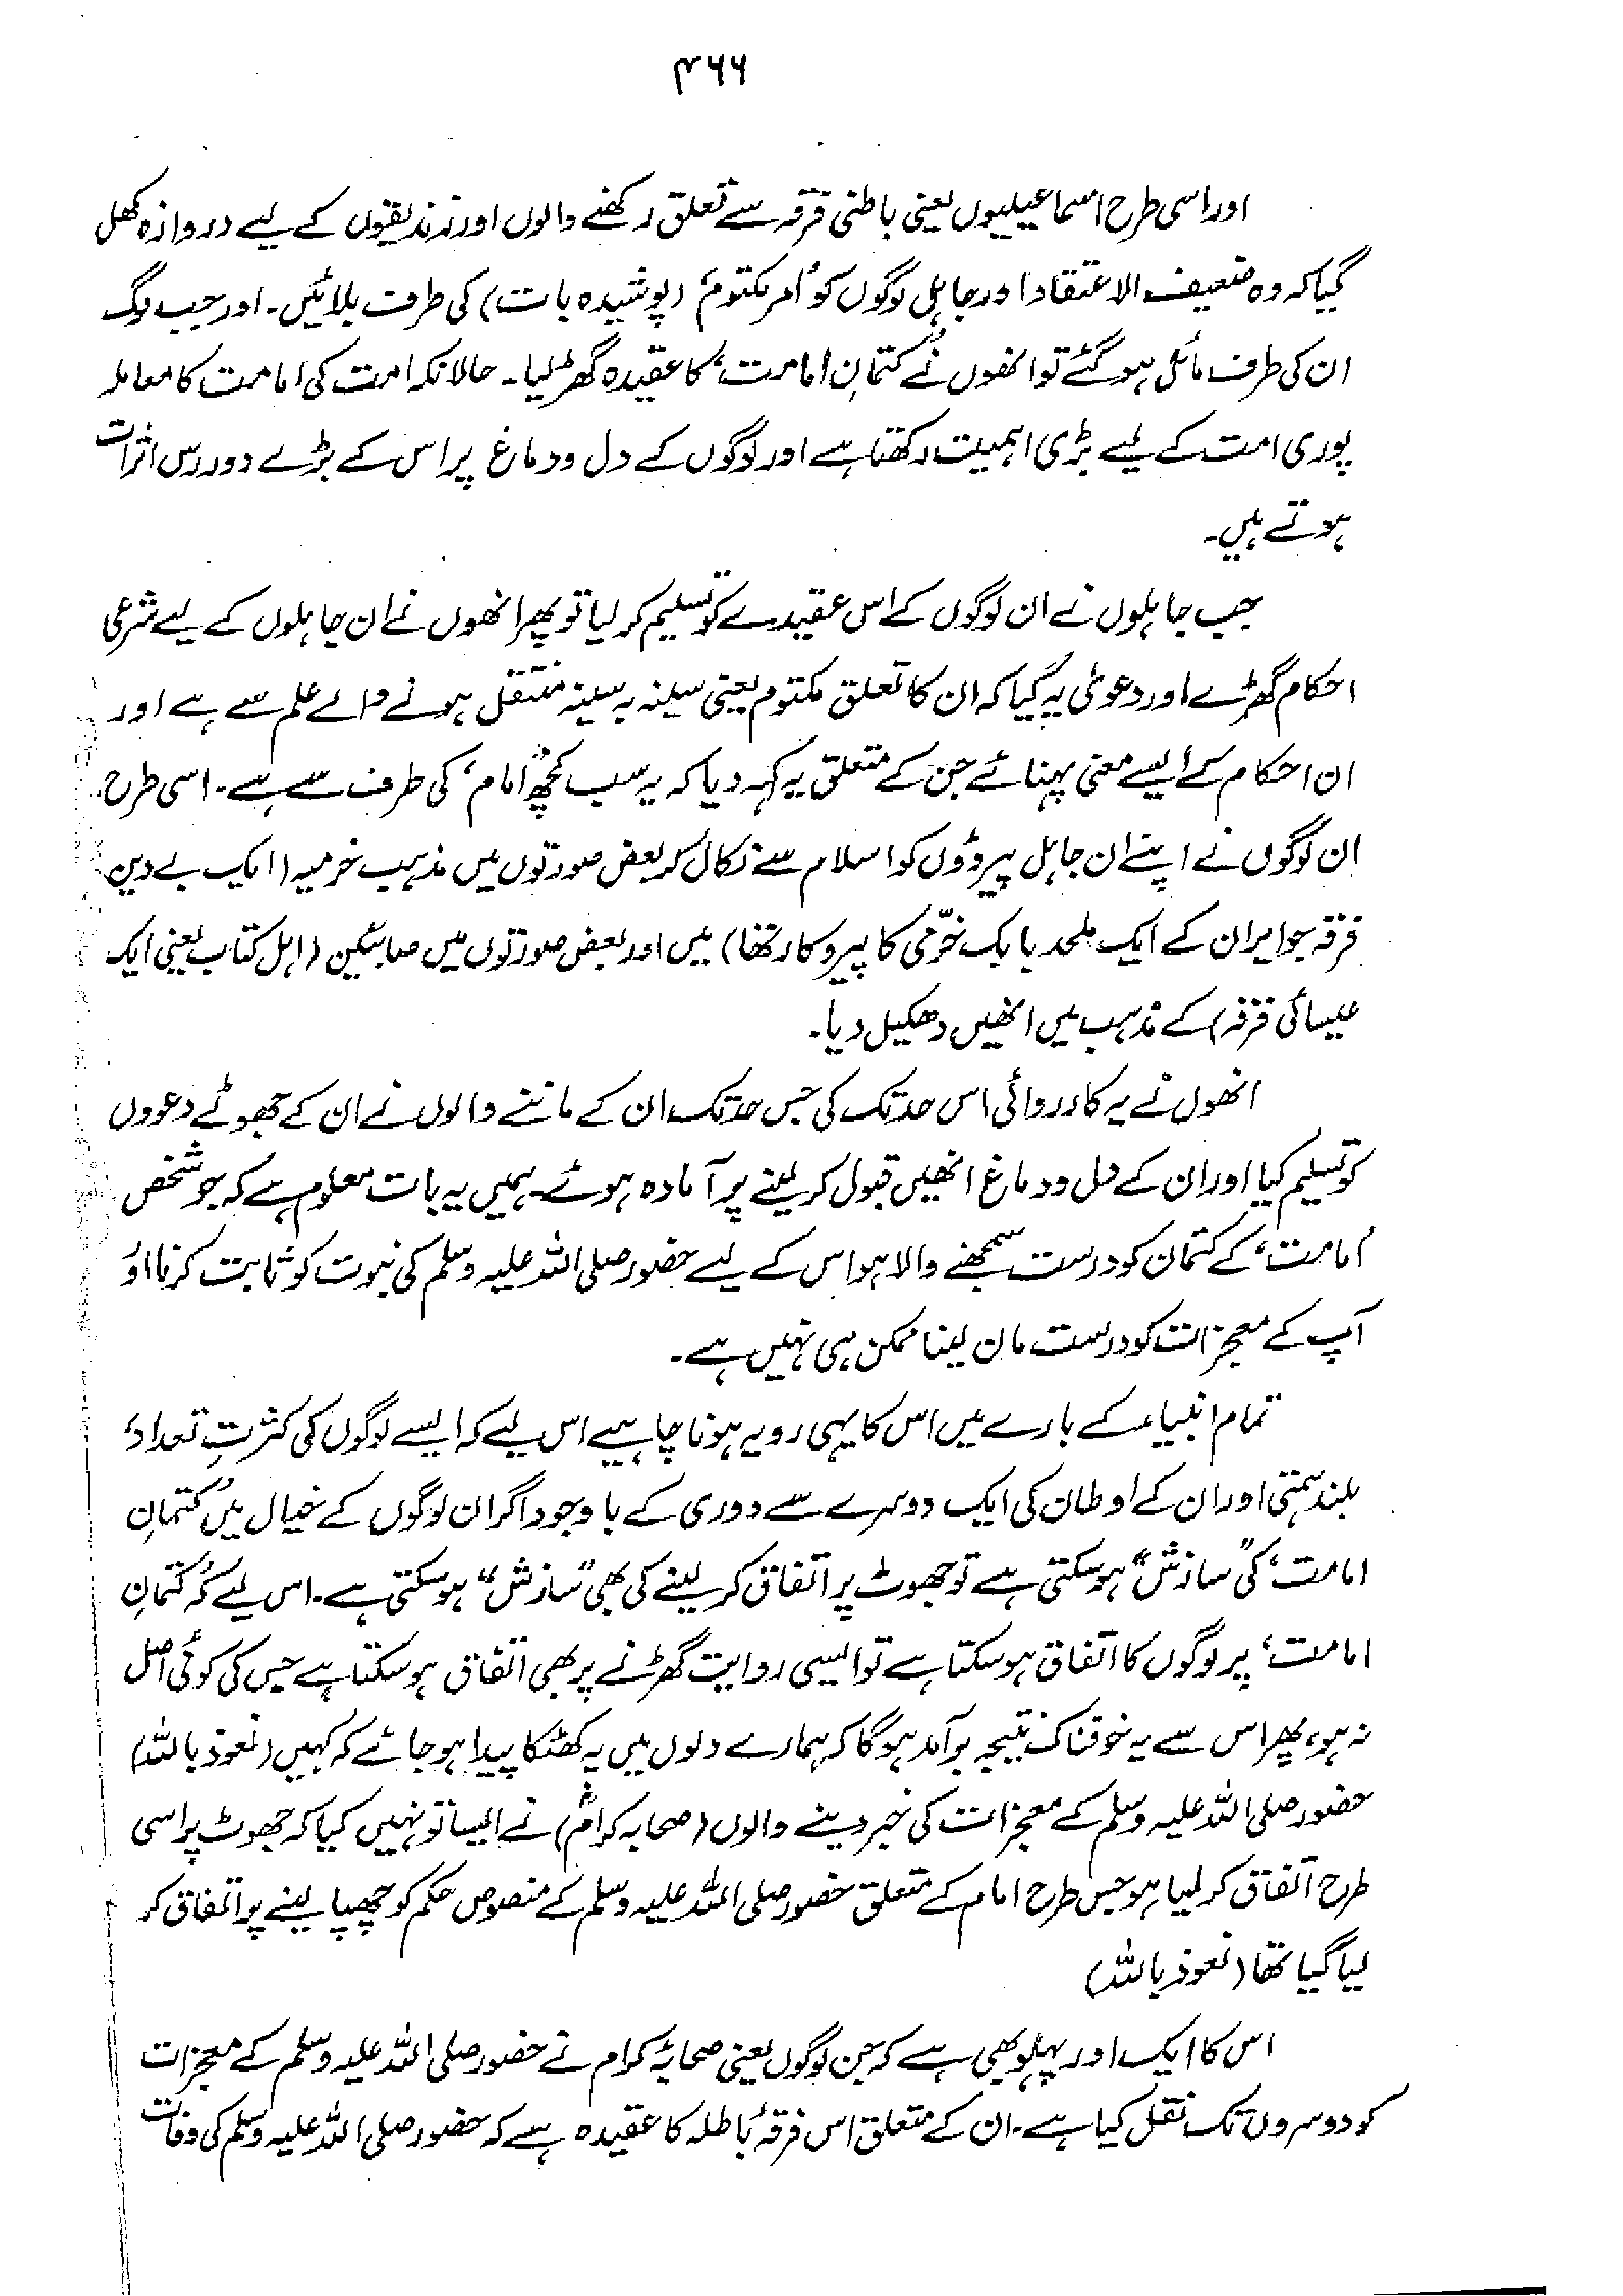 ۴۶۶
اور اسی طرح اسماعیلیوں یعنی باطنی فرقہ سے تعلق رکھنے والوں اور زندیقوں کے لیے دروازہ کھل
گیا کہ وہ ضعیف الاعتقاد اور جاہل لوگوں کو 'امر مکتوم' (پوشیدہ بات) کی طرف بلائیں۔ اور جب لوگ
ان کی طرف مائل ہو گئے تو انھوں نے 'کتمانِ امامت' کا عقیدہ گھڑ لیا۔ حالانکہ امت کی امامت کا معاملہ
پوری امت کے لیے بڑی اہمیت رکھتا ہے اور لوگوں کے دل و دماغ پر اس کے بڑے دور رس اثرات
ہوتے ہیں۔
جب جاہلوں نے ان لوگوں کے اس عقیدے کو تسلیم کر لیا تو پھر انھوں نے ان جاہلوں کے لیے شرعی
احکام گھڑے اور دعویٰ یہ کیا کہ ان کا تعلق مکتوم یعنی سینہ بہ سینہ منتقل ہونے والے علم سے ہے اور
ان احکام کے ایسے معنی پہنائے جن کے متعلق یہ کہہ دیا کہ یہ سب کچھ 'امام' کی طرف سے ہے۔ اسی طرح
ان لوگوں نے اپنے ان جاہل پیروؤں کو اسلام سے نکال کر بعض صورتوں میں مذہب خرمیہ (ایک بے دین
فرقہ جو ایران کے ایک ملحد بابک خرّمی کا پیروکار تھا) میں اور بعض صورتوں میں صابئین (اہل کتاب یعنی ایک
عیسائی فرقہ) کے مذہب میں انھیں دھکیل دیا۔
انھوں نے یہ کارروائی اس حد تک کی جس حد تک ان کے ماننے والوں نے ان کے جھوٹے دعووں
کو تسلیم کیا اور ان کے دل و دماغ انھیں قبول کر لینے پر آمادہ ہوئے۔ ہمیں یہ بات معلوم ہے کہ جو شخص
'امامت' کے کتمان کو درست سمجھنے والا ہو اس کے لیے حضور صلی اللہ علیہ وسلم کی نبوت کو ثابت کرنا اور
آپ کے معجزات کو درست مان لینا ممکن ہی نہیں ہے۔
تمام انبیاء کے بارے میں اس کا یہی رویہ ہونا چاہیے اس لیے کہ ایسے لوگوں کی کثرتِ تعداد،
بلند ہمتی اور ان کے اوطان کی ایک دوسرے سے دوری کے باوجود اگر ان لوگوں کے خیال میں 'کتمانِ
امامت' کی "سازش" ہو سکتی ہے تو جھوٹ پر اتفاق کر لینے کی بھی "سازش" ہو سکتی ہے۔ اس لیے کہ 'کتمانِ
امامت' پر لوگوں کا اتفاق ہو سکتا ہے تو ایسی روایت گھڑنے پر بھی اتفاق ہو سکتا ہے جس کی کوئی اصل
نہ ہو، پھر اس سے یہ خوفناک نتیجہ برآمد ہو گا کہ ہمارے دلوں میں یہ کھٹکا پیدا ہو جائے کہ کہیں (نعوذ باللہ)
حضور صلی اللہ علیہ وسلم کے معجزات کی خبر دینے والوں (صحابہ کرامؓ) نے ایسا تو نہیں کیا کہ جھوٹ پر اسی
طرح اتفاق کر لیا ہو جس طرح امام کے متعلق حضور صلی اللہ علیہ وسلم کے منصوص حکم کو چھپا لینے پر اتفاق کر
لیا گیا تھا (نعوذ باللہ)
اس کا ایک اور پہلو بھی ہے کہ جن لوگوں یعنی صحابۂ کرام نے حضور صلی اللہ علیہ وسلم کے معجزات
کو دوسروں تک نقل کیا ہے۔ ان کے متعلق اس فرقۂ باطلہ کا عقیدہ ہے کہ حضور صلی اللہ علیہ وسلم کی وفات